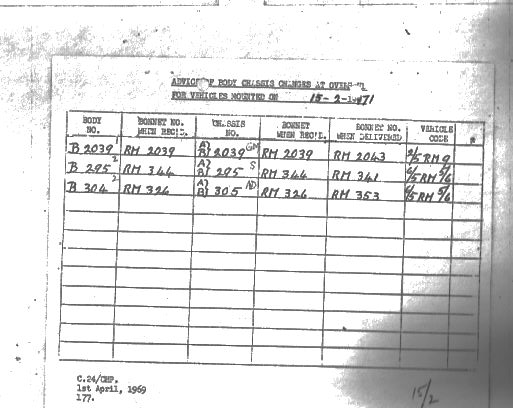 ADVICE OF BODY CHASSIS CHANGES AT
FOR VEHICLES MOUNTED ON 15-2-1971
BODY NO. BONNET NO. WHEN REC'D. CHASSIS NO. BONNET WHEN REC'D. BONNET NO. WHEN DELIVERED VEHICLE CODE
B 2039 1 RM 2039 A) B) 2039 GM RM 2039 RM 2043 2/5 RM 9
B 295 2 RM 344 A) B) 295 S RM 344 RM 341 6/5 RM 5/6
B 304 2 RM 324 A) B) 305 ND RM 324 RM 353 6/5 RM 5/6
C.24/CHP.
1st April, 1969
177.
15/2